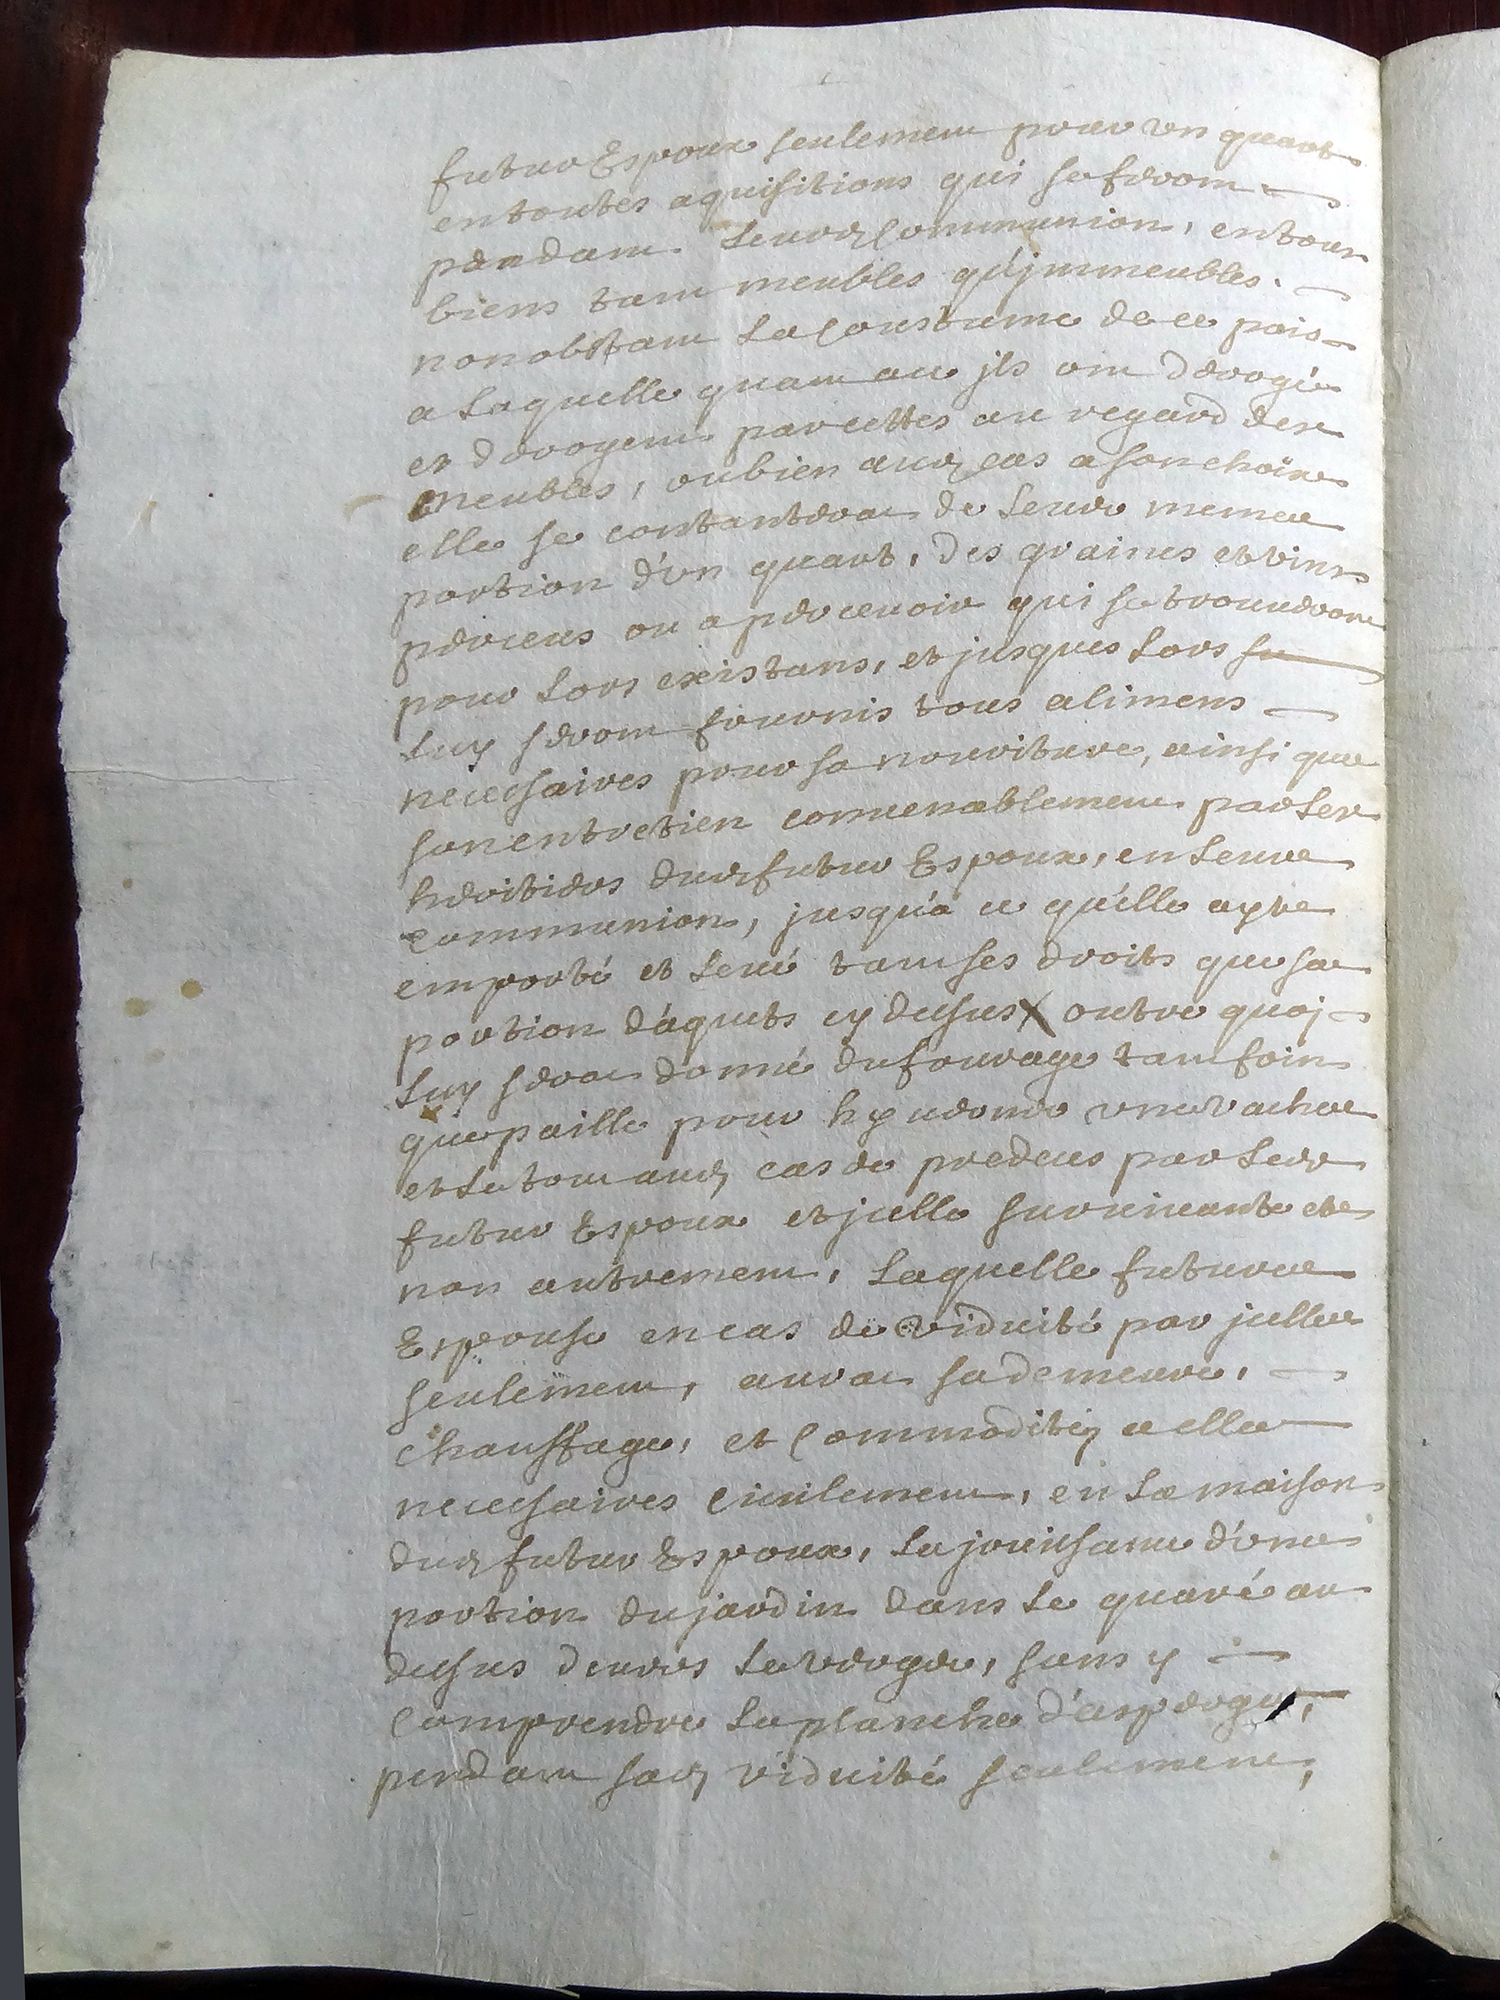 futur Espoux seulement pour un quart
en toutes aquisitions qui se feront
pendant leurd. Communion, en tous
biens tant meubles qu'jmmeubles.
nonobstant la Coustume de ce païs
a laquelle quant ace jls ont derogé
et derogent par cettes au regard des
meubles, ou bien aud. cas a son choix
elle se contantera de leur meme
portion d'un quart, des graines et vins
perceus ou a percevoir qui se trouveront
pour lors existans, et jusques lors
luy seront fournis tous alimens
necessaires pour sa nouriture, ainsi que
son entretien convenablement par les
heritiers dud. futur Espoux, en leur
communion, jusqu'à ce qu'elle ayte
emporté et levé tant ses droits que sa
portion d'aquets cy dessus outre quoj
luy sera donné du fourage tant foin
que paille pour une vache
et le tout aud. cas de predeces par led.
futur Espoux et jcelle survivante et
non autrement, laquelle future
Espouse en cas de viduité par jcelle
seulement, aura sa demeure,
chauffage, et Commoditéz a elle
necessaires Civilement, en la maison
dud. futur Espoux, la jouissance d'une
portion du jardin dans le quaré au
dessus devers le verger, sans y
Comprendre la planche d'asperges,
pendant sad. viduité seulement,